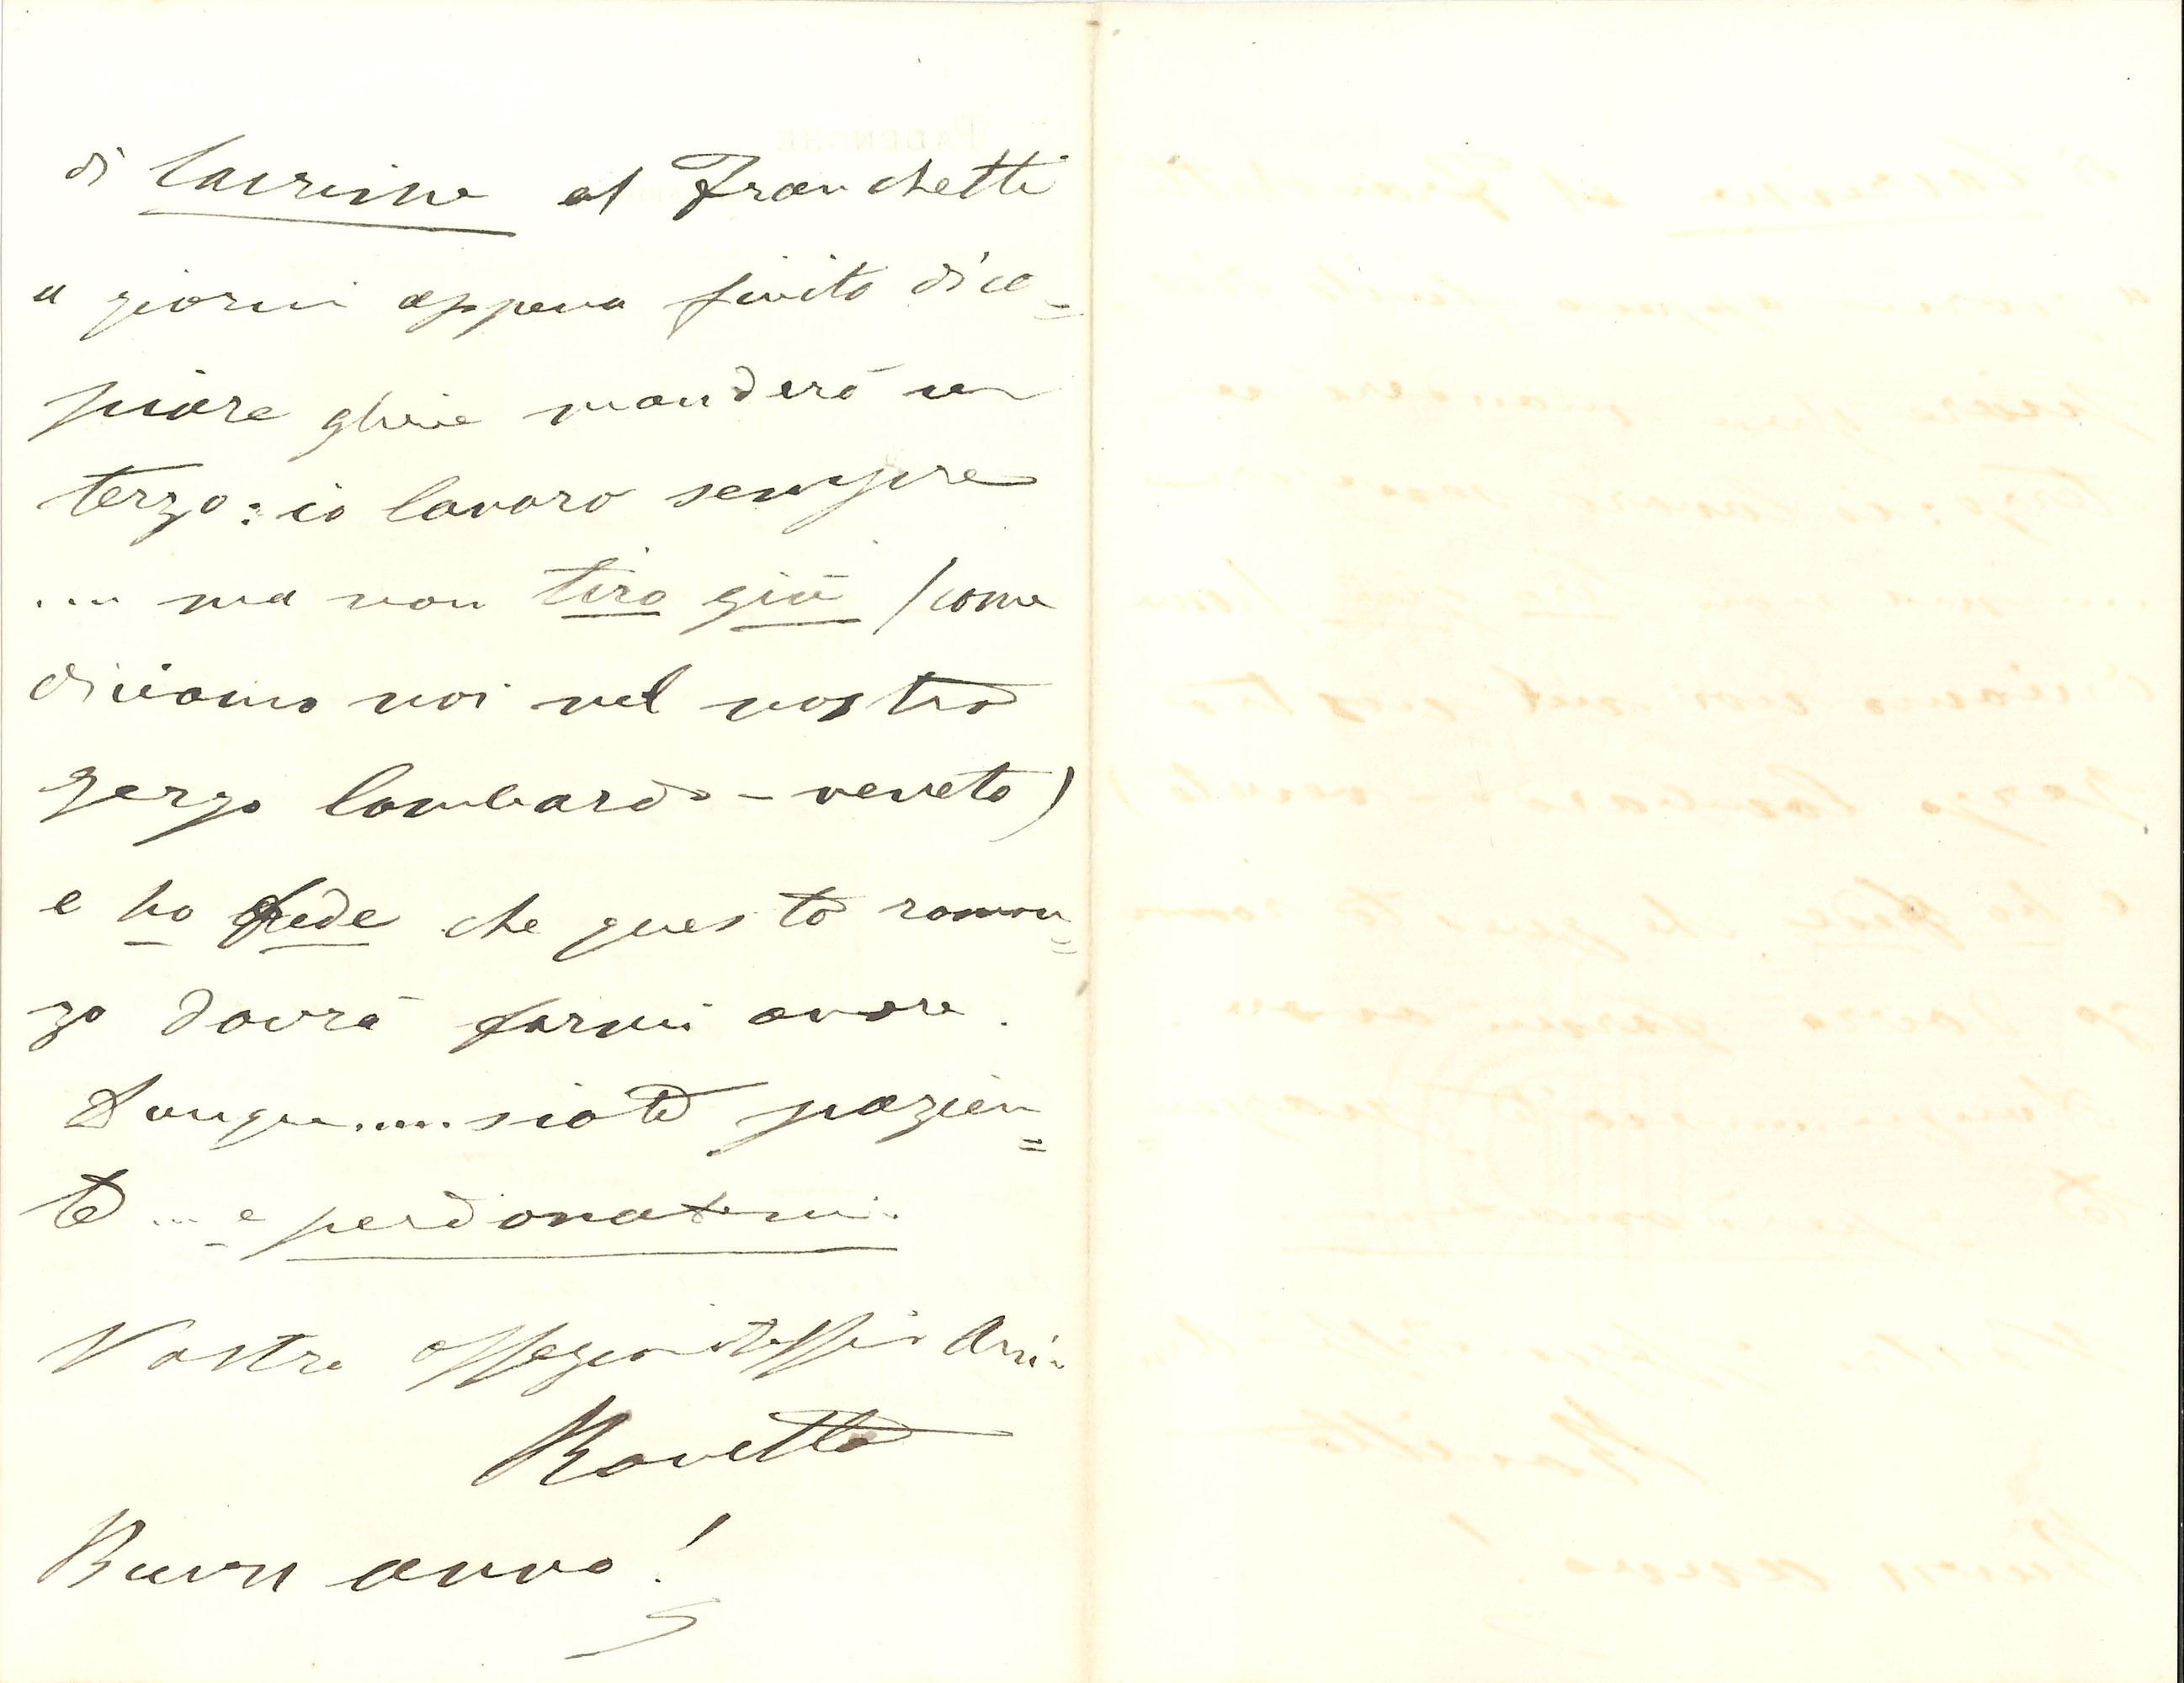 di Lacrime al Franchetti
a giorni appena finito di co=
piare gliene manderò un
terzo: io lavoro sempre
.... ma non tiro giù (come
diciamo noi nel nostro
gergo lombardo-veneto)
e ho fede che questo roman=
zo dovrà farmi onore.
Dunque..... siate pazien=
te ... e perdonatemi.
Vostro affezionatissimo
Rovetta
Buon anno!
PADENGHE